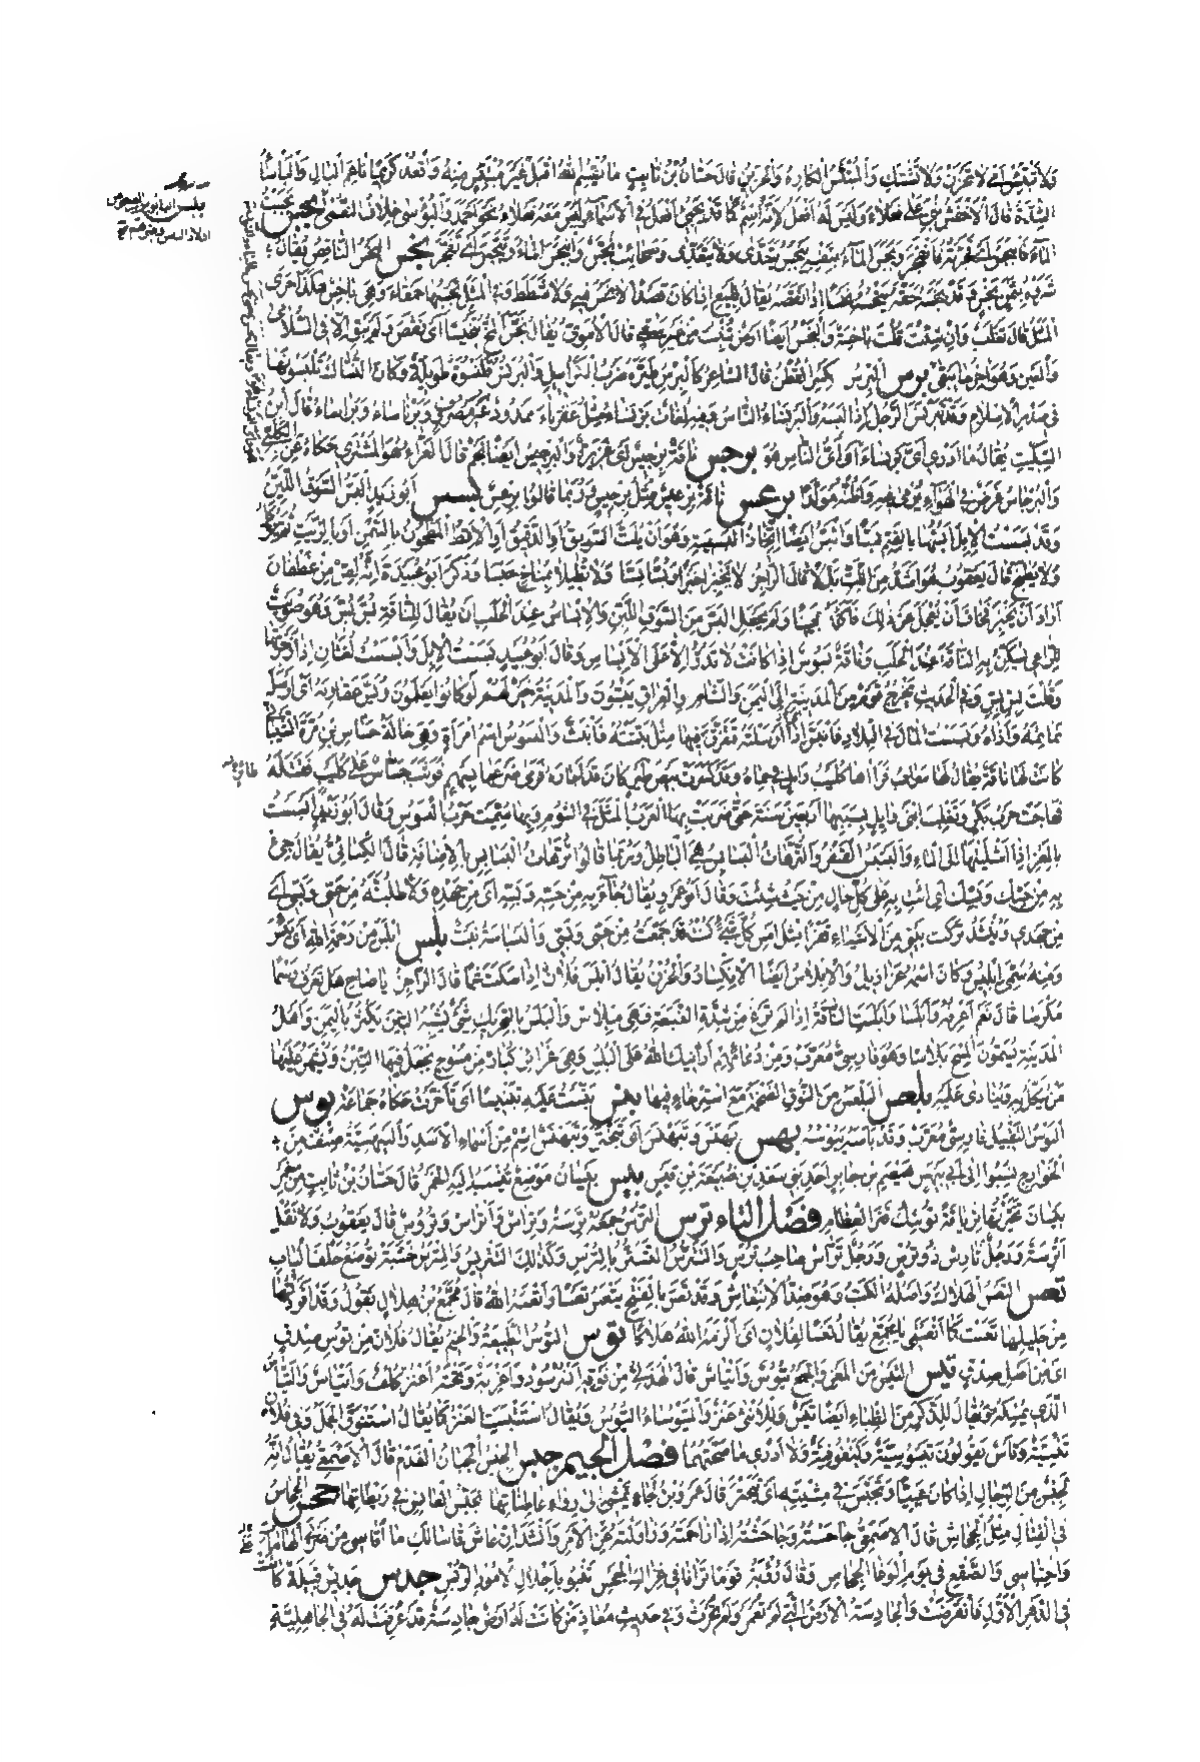 فلا تبتئس اي لا تحزن ولا تشتك والمبتئس الكاره والحزين قال حسان بن ثابت ما يقسم الله اقبل غير مبتئس منه واقعد كريما ناعم البال والبأساء
الشدة قال الاخفش بني على فعلاء وليس له افعل لانه اسم كما قد يجيء افعل في الاسماء ليس معه فعلاء نحو احمد والبؤسى خلاف النعمى بجس بجست
الماء فانبجس اي فجرته فانفجر وبجس الماء بنفسه يبجس يتعدى ولا يتعدى وسحائب بجس وانبجس الماء وتبجس اي تفجر بخس البخس الناقص يقال
شراه بثمن بخس وقد بخسه حقه يبخسه بخسا اذا نقصه يقال للبيع اذا كان قصدا لا بخس فيه ولا شطط وفي المثل تحسبها حمقاء وهي باخس هكذا جرى
المثل قال ثعلب وان شئت قلت باخسة والبخس ايضا ارض تنبت من غير سقي قال الاموي يقال بخس المخ تبخيسا اي نقص ولم يبق الا في السلامى
والعين وهو اخر ما يبقى برس البرس القطن قال الشاعر كالبرس طيره ضرب الكرابيل والبرنس قلنسوة طويلة وكان النساك يلبسونها
في صدر الاسلام وقد تبرنس الرجل اذا لبسه والبرنساء الناس وفيه لغات برنساء مثل عقرباء ممدود غير مصروف وبرناساء وبراساء قال ابن
السكيت يقال ما ادري اي برنساء هو اي الناس هو برجس ناقة برجيس اي غزيرة والبرجيس ايضا نجم قال الفراء هو المشتري حكاه عن الكلبي
والبرجاس غرض في الهواء يرمى فيه واظنه مولدا برعس ناقة برعس مثل برجيس وربما قالوا برعيس بسس ابو زيد البس السويق اللين
وقد بسست الابل ابسها بالضم بسا والبس ايضا اتخاذ البسيسة وهو ان يلت السويق او الدقيق او الاقط المطحون بالسمن او بالزيت ثم يؤكل
ولا يطبخ قال يعقوب هو اشد من اللت بللا قال الراجز لا تخبزا خبزا وبسا بسا ولا تطيلا بمناخ حبسا وذكر ابو عبيدة انه لص من غطفان
اراد ان يخبز فخاف ان يعجل عن ذلك فاكله عجينا ولم يجعل البس من السوق اللين والابساس عند الحلب ان يقال للناقة بس بس وهو صويت
للراعي يسكن به الناقة عند الحلب وناقة بسوس اذا كانت لا تدر الا على الابساس وقال ابو عبيد بسست الابل وابسست لغتان اذا زجرتها
وقلت بس بس وفي الحديث يخرج قوم من المدينة الى اليمن والشام والعراق يبسون والمدينة خير لهم لو كانوا يعلمون وبس عقاربه اي ارسل
نمائمه واذاه وبسست المال في البلاد فانبس اذا ارسلته فتفرق فيها مثل بثثته فانبث والبسوس اسم امراة وهي خالة جساس بن مرة الشيباني
كانت لها ناقة يقال لها سراب فراها كليب وائل في حماه وقد كسرت بيض طير كان قد اجاره فرمى ضرعها بسهم فوثب جساس على كليب فقتله
فهاجت حرب بكر وتغلب ابني وائل بسببها اربعين سنة حتى ضربت بها العرب المثل في الشوم وبها سميت حرب البسوس وقال ابو زيد ابسست
بالمعز اذا اشليتها الى الماء والبسبس القفر والترهات البسابس هي الباطل وربما قالوا ترهات البسابس بالاضافة قال الكسائي يقال جئ
به من حسك وبسك اي ائت به على كل حال من حيث شئت وقال ابو عمرو يقال جاء به من حسه وبسه اي من جهده ولاطلبنه من حسي وبسي اي
من جهدي وينشد تركت بيتي من الاشياء قفرا مثل امس كل شيء كنت قد جمعت من حسي وبسي والبسباسة نبت بلس ابلس من رحمة الله اي يئس
ومنه سمي ابليس وكان اسمه عزازيل والابلاس ايضا الانكسار والحزن يقال ابلس فلان اذا سكت غما قال الراجز يا صاح هل تعرف رسما
مكرسا قال نعم اعرفه وابلسا وابلست الناقة اذا لم ترغ من شدة الضبعة فهي مبلاس والبلس بالتحريك شيء يشبه التين يكثر باليمن واهل
المدينة يسمون المسح بلاسا وهو فارسي معرب ومن دعائهم ارانيك الله على البلس وهي غرائر كبار من مسوح يجعل فيها التبن ويشهر عليها
من ينكل به وينادى عليه بلعس البلعس من النوق الضخمة مع استرخاء فيها بنس بنست عليه تبنيسا اي تاخرت حكاه جماعة بوس
البوس التقبيل فارسي معرب وقد باسه يبوسه بهس بيهس وتبيهس اي تبختر وبيهس اسم من اسماء الاسد والبيهسية صنف من
الخوارج نسبوا الى ابي بيهس هيصم بن جابر احد بني سعد بن ضبيعة بن قيس بيس بيسان موضع تنسب اليه الخمر قال حسان بن ثابت من خمر
بيسان تخيرتها ترياقة توشك فتر العظام فصل التاء ترس الترس جمعه ترسة وتراس واتراس وتروس قال يعقوب ولا تقل
اترسة ورجل تارس ذو ترس ورجل تراس صاحب ترس والتترس التستر بالترس وكذلك التتريس والمترس خشبة توضع خلف الباب
تعس التعس الهلاك واصله الكب وهو ضد الانتعاش وقد تعس بالفتح يتعس تعسا واتعسه الله قال مجمع بن هلال تقول وقد افردتها
من حليلها تعست كما اتعستني يا مجمع يقال تعسا لفلان اي الزمه الله هلاكا توس التوس الطبيعة والخيم يقال فلان من توس صدق
اي من اصل صدق تيس التيس من المعز والجمع تيوس واتياس قال الهذلي من فوقه انسر سود واغربة وتحته اعنز كلف واتياس والتياس
الذي يمسكه ويقال للذكر من الظباء ايضا تيس وللانثى عنز والمتيوساء التيوس ويقال استتيست العنز كما يقال استنوق الجمل وفي فلان
تيسية وناس يقولون تيسوسية وكيفوفية ولا ادري ما صحتهما فصل الجيم جبس الجبس الجبان الفدم قال الاصمعي يقال انه
لجبس من الرجال اذا كان عييا وتجبس في مشيته اي تبختر قال عمرو بن لجاء تمشي الى رواء عاطناتها تجبس العانس في ريطاتها جحس الجحاس
في القتال مثل الجحاش قال الاصمعي جاحسته وجاحشته اذا زاحمته وزاولته على الامر وانشد ان عاش قاسى لك ما اقاسي من ضربي الهامات
واحتباسي والصقع في يوم الوغى الجحاس وقال رؤبة جدس جديس قبيلة كانت
في الدهر الاول فانقرضت والجادسة الارض التي لم تعمر ولم تحرث وفي حديث معاذ من كانت له ارض جادسة قد عرفت له في الجاهلية